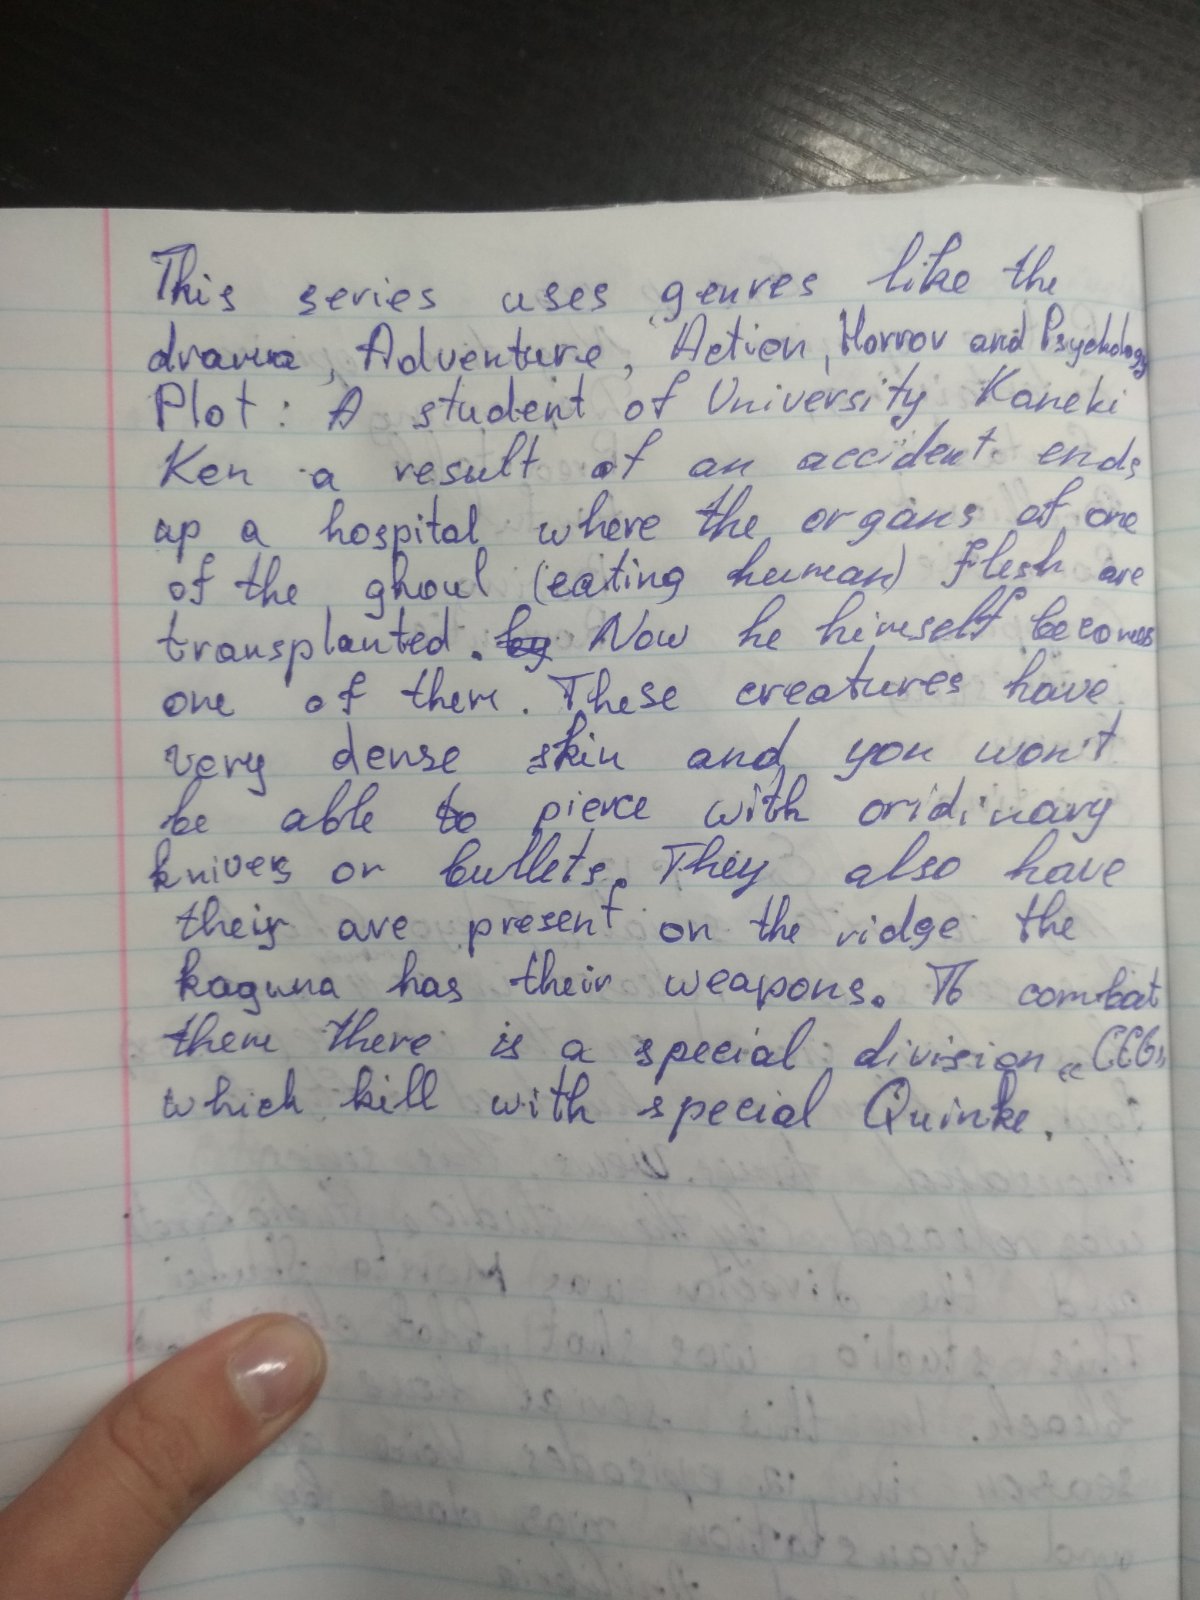 This series uses genres like the
drama, Adventure, Action, Horror and Psychology
Plot: A student of University Kaneki
Ken a result of an accident ends
up a hospital where the organs of one
of the ghoul (eating human) flesh are
transplanted. Now he himself becomes
one of them. These creatures have
very dense skin and you won't
be able to pierce with oridinary
knives or bullets. They also have
their are present on the ridge the
kaguna has their weapons. To combat
them there is a special division «CCG»
which kill with special Quinke.